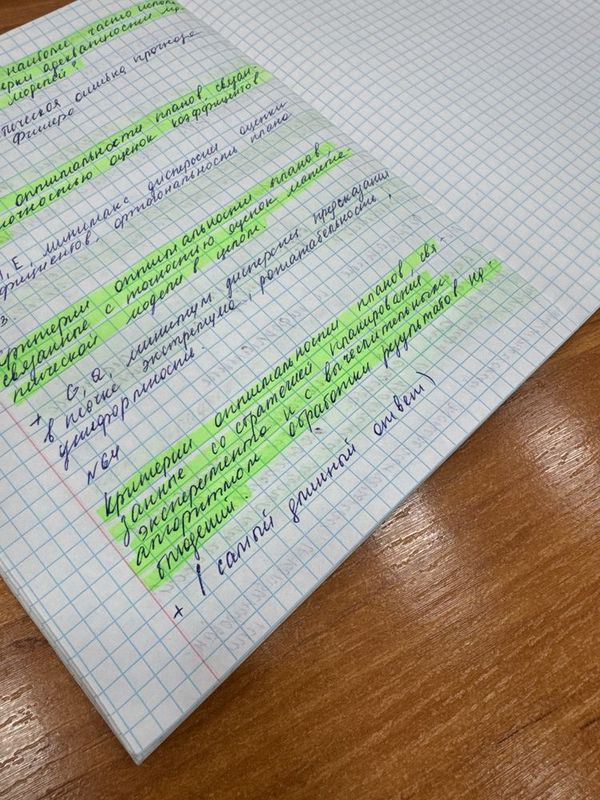 наиболее часто исполь
рки адекватности мо
моделей?
ическая ошибка прогноза
Фишера
оптимальности планов, связан
точностью оценок коэффициентов
, E, минимакс дисперсии оценки
фициентов, ортогональность плана
3.
Критерии оптимальности планов
связанные с точностью оценок матема-
тической модели в целом.
+ G, Q, минимум дисперсии предсказания
в точке экстремума, ротатабельность,
униформность.
№64
Критерии оптимальности планов, свя-
занные со стратегией планирования
эксперимента и с вычислительным
алгоритмом обработки результатов на-
блюдений.
+ (самый длинный ответ)